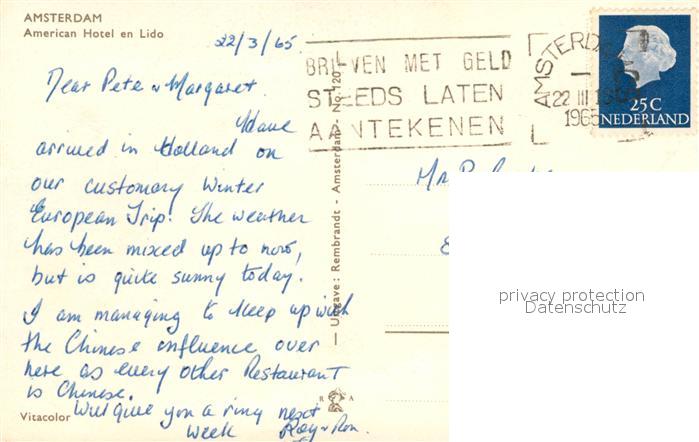 AMSTERDAM
American Hotel en Lido
22/3/65.
Dear Pete & Margaret.
Have
arrived in Holland on
our customary Winter
European Trip. The weather
has been mixed up to now,
but is quite sunny today.
I am managing to keep up with
the Chinese influence over
here as every other Restaurant
is Chinese.
Will give you a ring next
week Ray & Ron.
Vitacolor
— Uitgave: Rembrandt - Amsterdam - No. 120
R A
BRIEVEN MET GELD
STEEDS LATEN
AANTEKENEN
AMSTERDAM
22 III
1965
25 C
NEDERLAND
privacy protection
Datenschutz